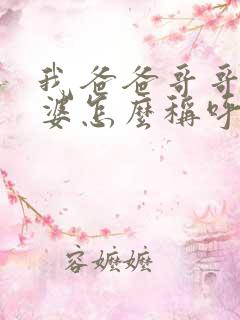 我爸爸哥哥
婆怎麼稱呼
容嬤嬤